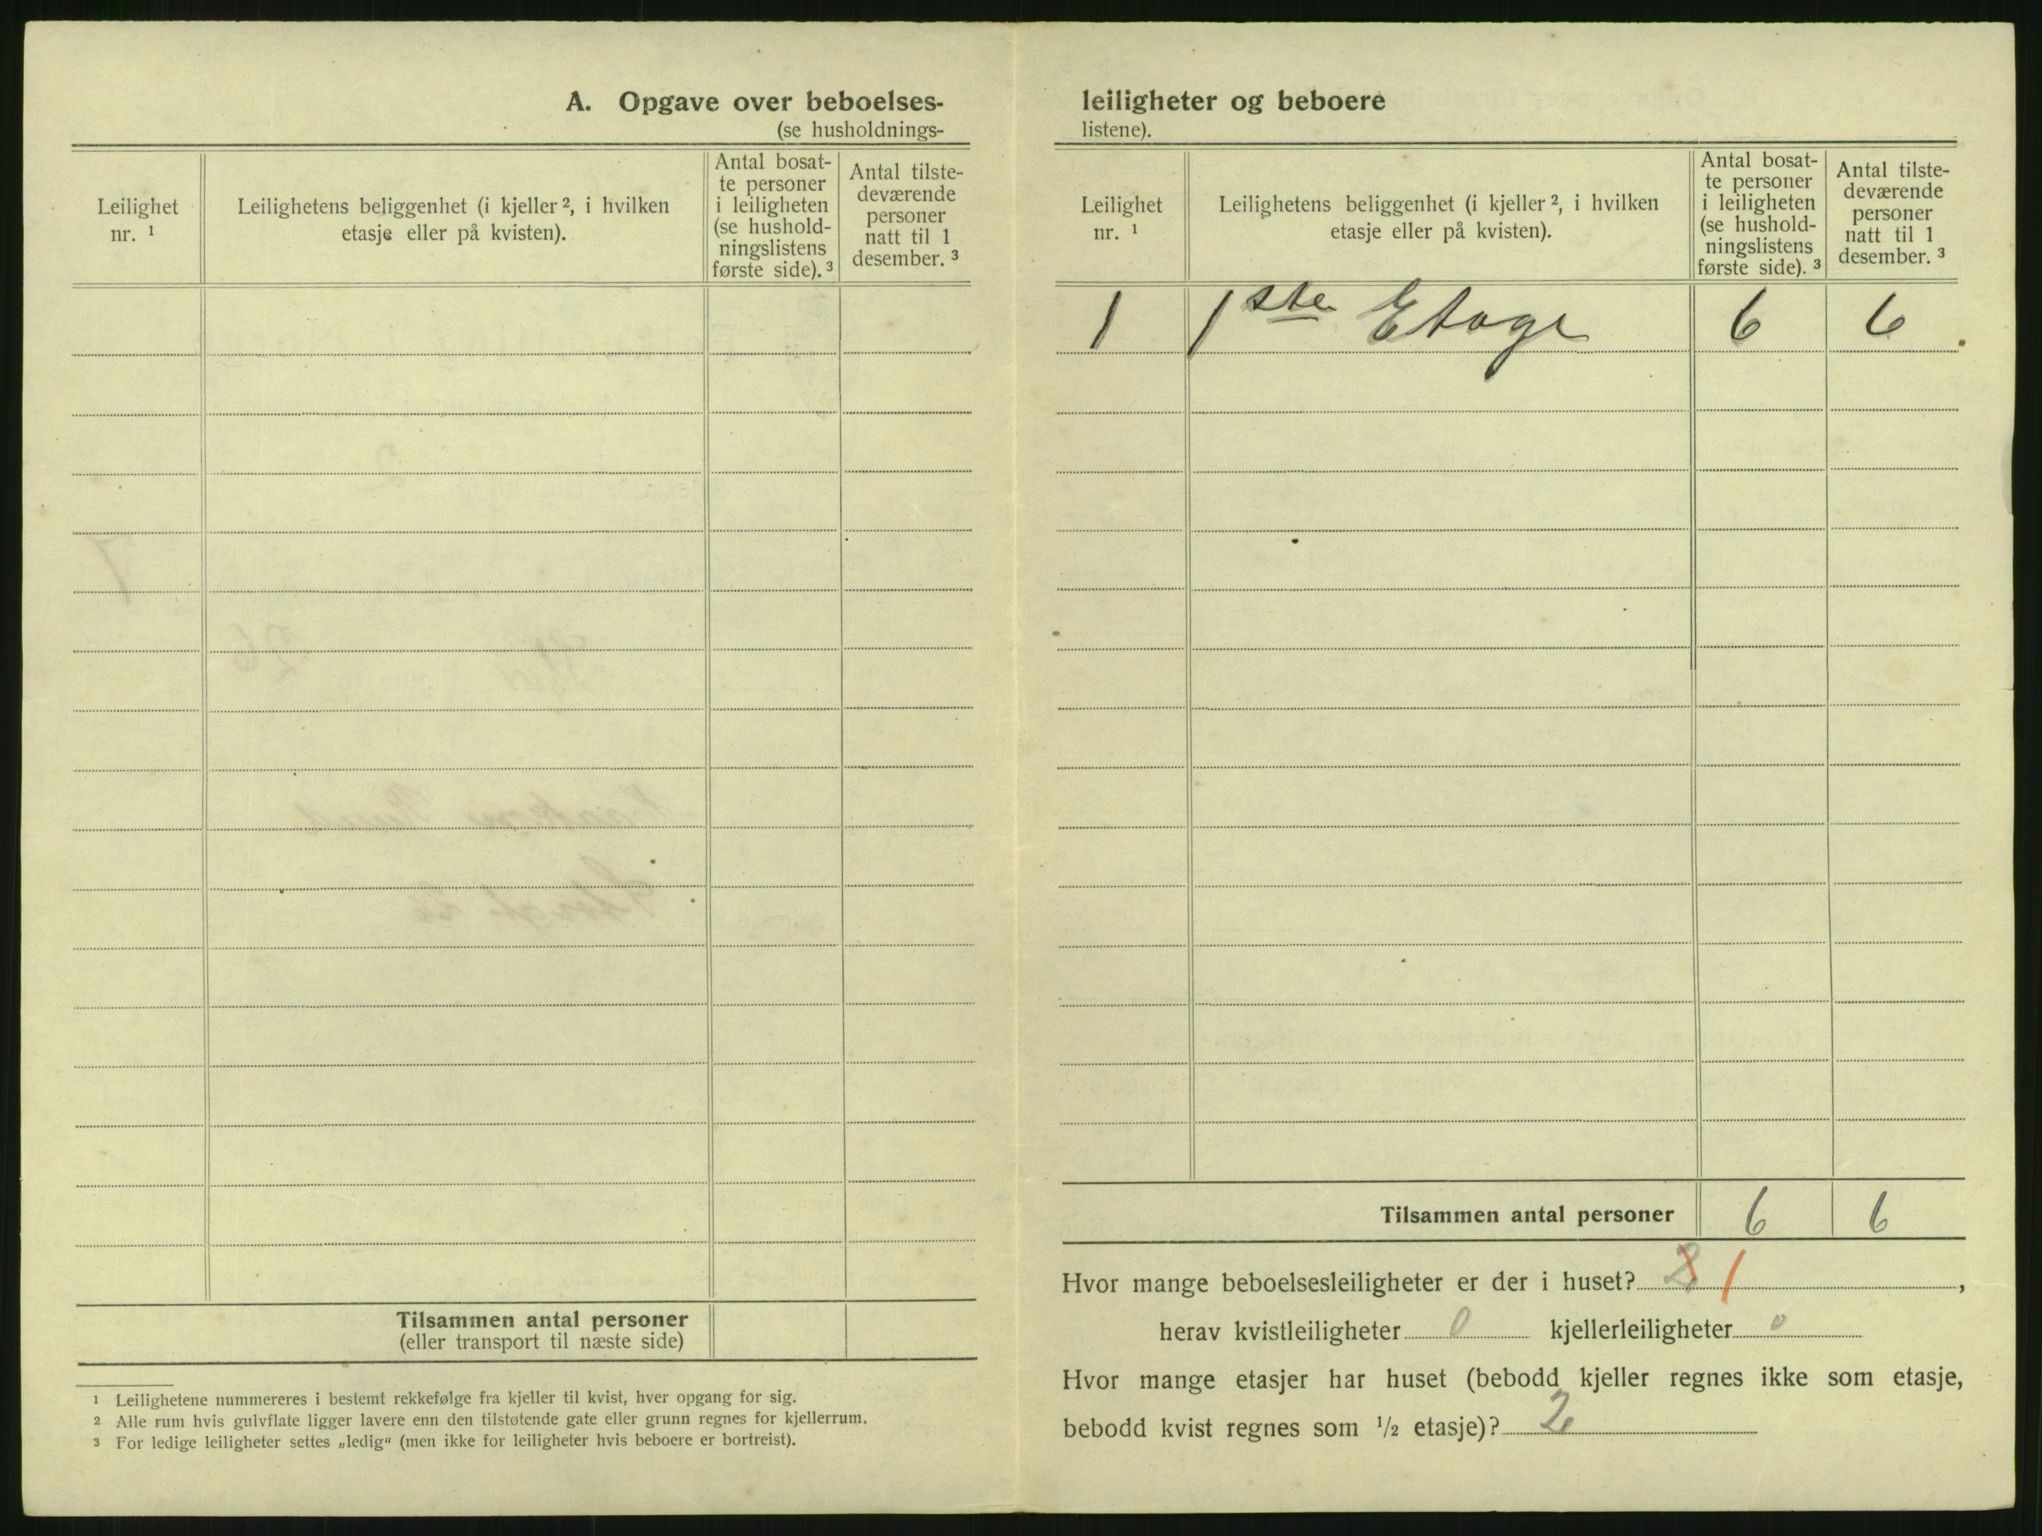 A. Opgave over beboelses-
(se husholdnings-
Leilighet nr. ¹
Leilighetens beliggenhet (i kjeller ², i hvilken etasje eller på kvisten).
Antal bosat-
te personer
i leiligheten
(se hushold-
ningslistens
første side). ³
Antal tilste-
deværende
personer
natt til 1
desember. ³
Tilsammen antal personer
(eller transport til næste side)
¹ Leilighetene nummereres i bestemt rekkefølge fra kjeller til kvist, hver opgang for sig.
² Alle rum hvis gulvflate ligger lavere enn den tilstøtende gate eller grunn regnes for kjellerrum.
³ For ledige leiligheter settes „ledig“ (men ikke for leiligheter hvis beboere er bortreist).
leiligheter og beboere
listene).
Leilighet nr. ¹
Leilighetens beliggenhet (i kjeller ², i hvilken etasje eller på kvisten).
Antal bosat-
te personer
i leiligheten
(se hushold-
ningslistens
første side). ³
Antal tilste-
deværende
personer
natt til 1
desember. ³
1 1ste Etage 6 6
Tilsammen antal personer 6 6
Hvor mange beboelsesleiligheter er der i huset? 2 1,
herav kvistleiligheter 0 kjellerleiligheter 0
Hvor mange etasjer har huset (bebodd kjeller regnes ikke som etasje,
bebodd kvist regnes som ½ etasje)? 2